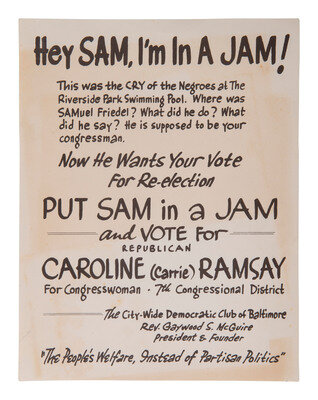 Hey SAM, I'm In A JAM!
This was the CRY of the Negroes at The
Riverside Park Swimming Pool. Where was
SAMuel Friedel? What did he do? What
did he say? He is supposed to be your
congressman.
Now He Wants Your Vote
For Re-election
PUT SAM in a JAM
and VOTE for
REPUBLICAN
CAROLINE (Carrie) RAMSAY
For Congresswoman · 7th Congressional District
The City-Wide Democratic Club of Baltimore
Rev. Gaywood S. McGuire
President & Founder
"The People's Welfare, Instead of Partisan Politics"